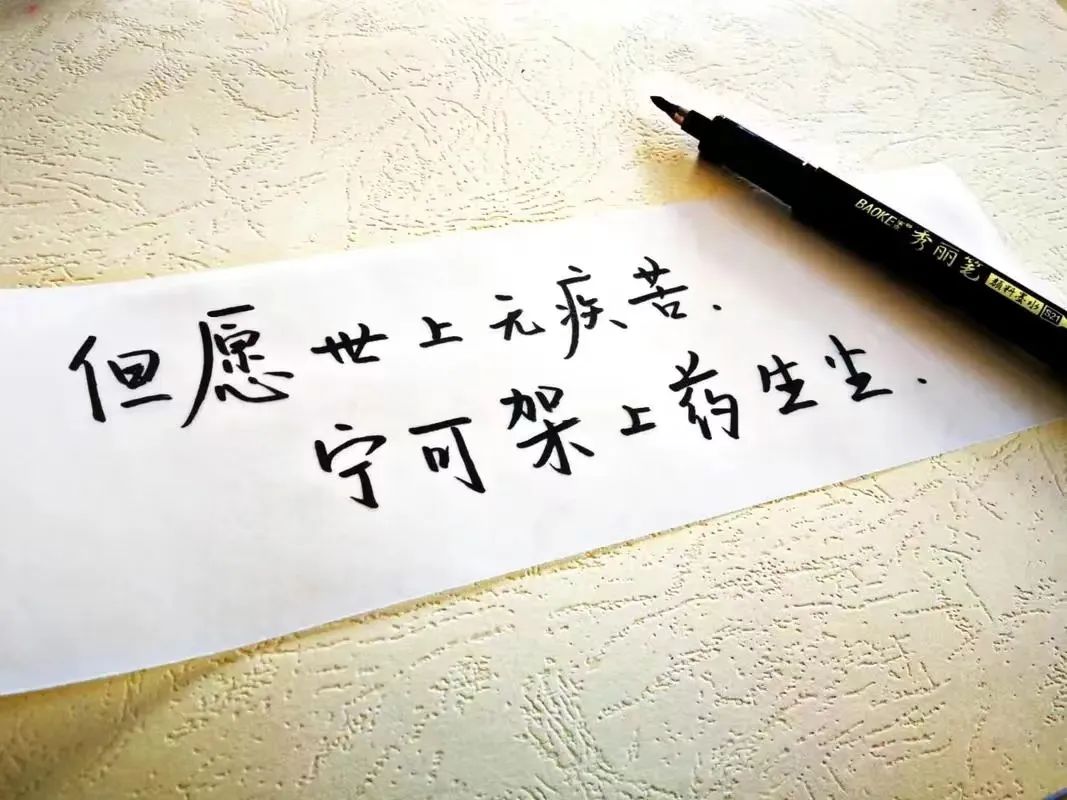 但愿世上无疾苦.
宁可架上药生尘.
BAOKE 宝克 秀丽笔 颜料墨水 S21